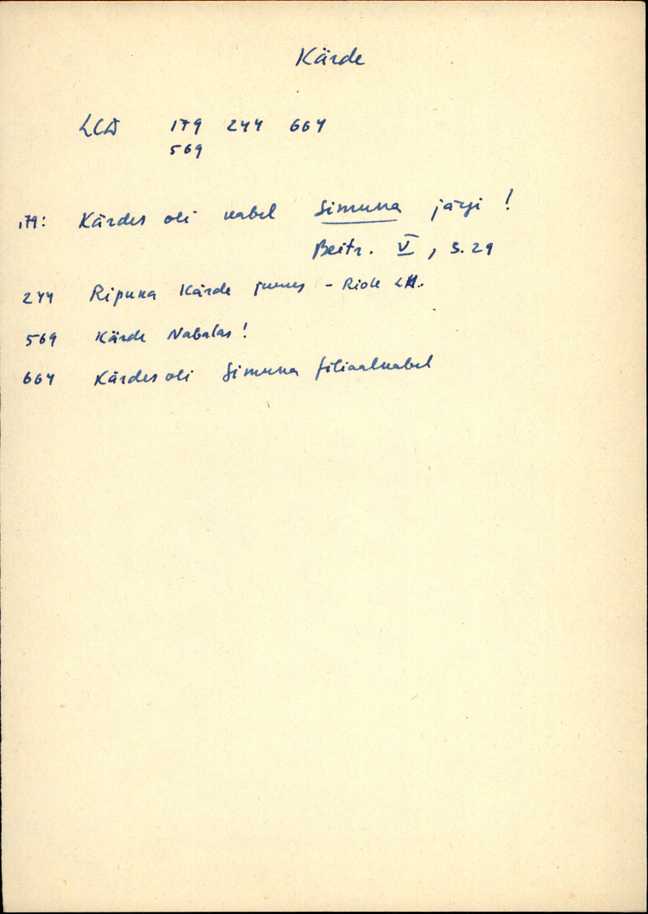 Kärde
LCD 179 244 664
569
179: Kärdes oli kabel Simuna järgi!
Beitr. V, S. 29
244 Ripuka Kärde juures -
569 Kärde Nabalas!
664 Kärdes oli Simuna filiaalkabel